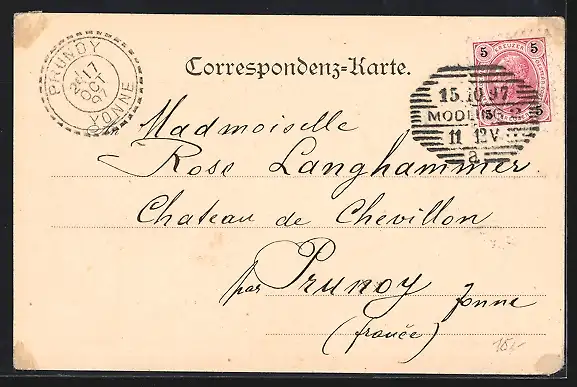 PRUNOY
17
OCT
97
YONNE
Correspondenz-Karte.
5 KREUZER 5
15.10.97
MÖDLING
11 12V
a
5
Mademoiselle
Rose Langhammer
Chateau de Chevillon
par Prunoy Yonne
(France)
15/-